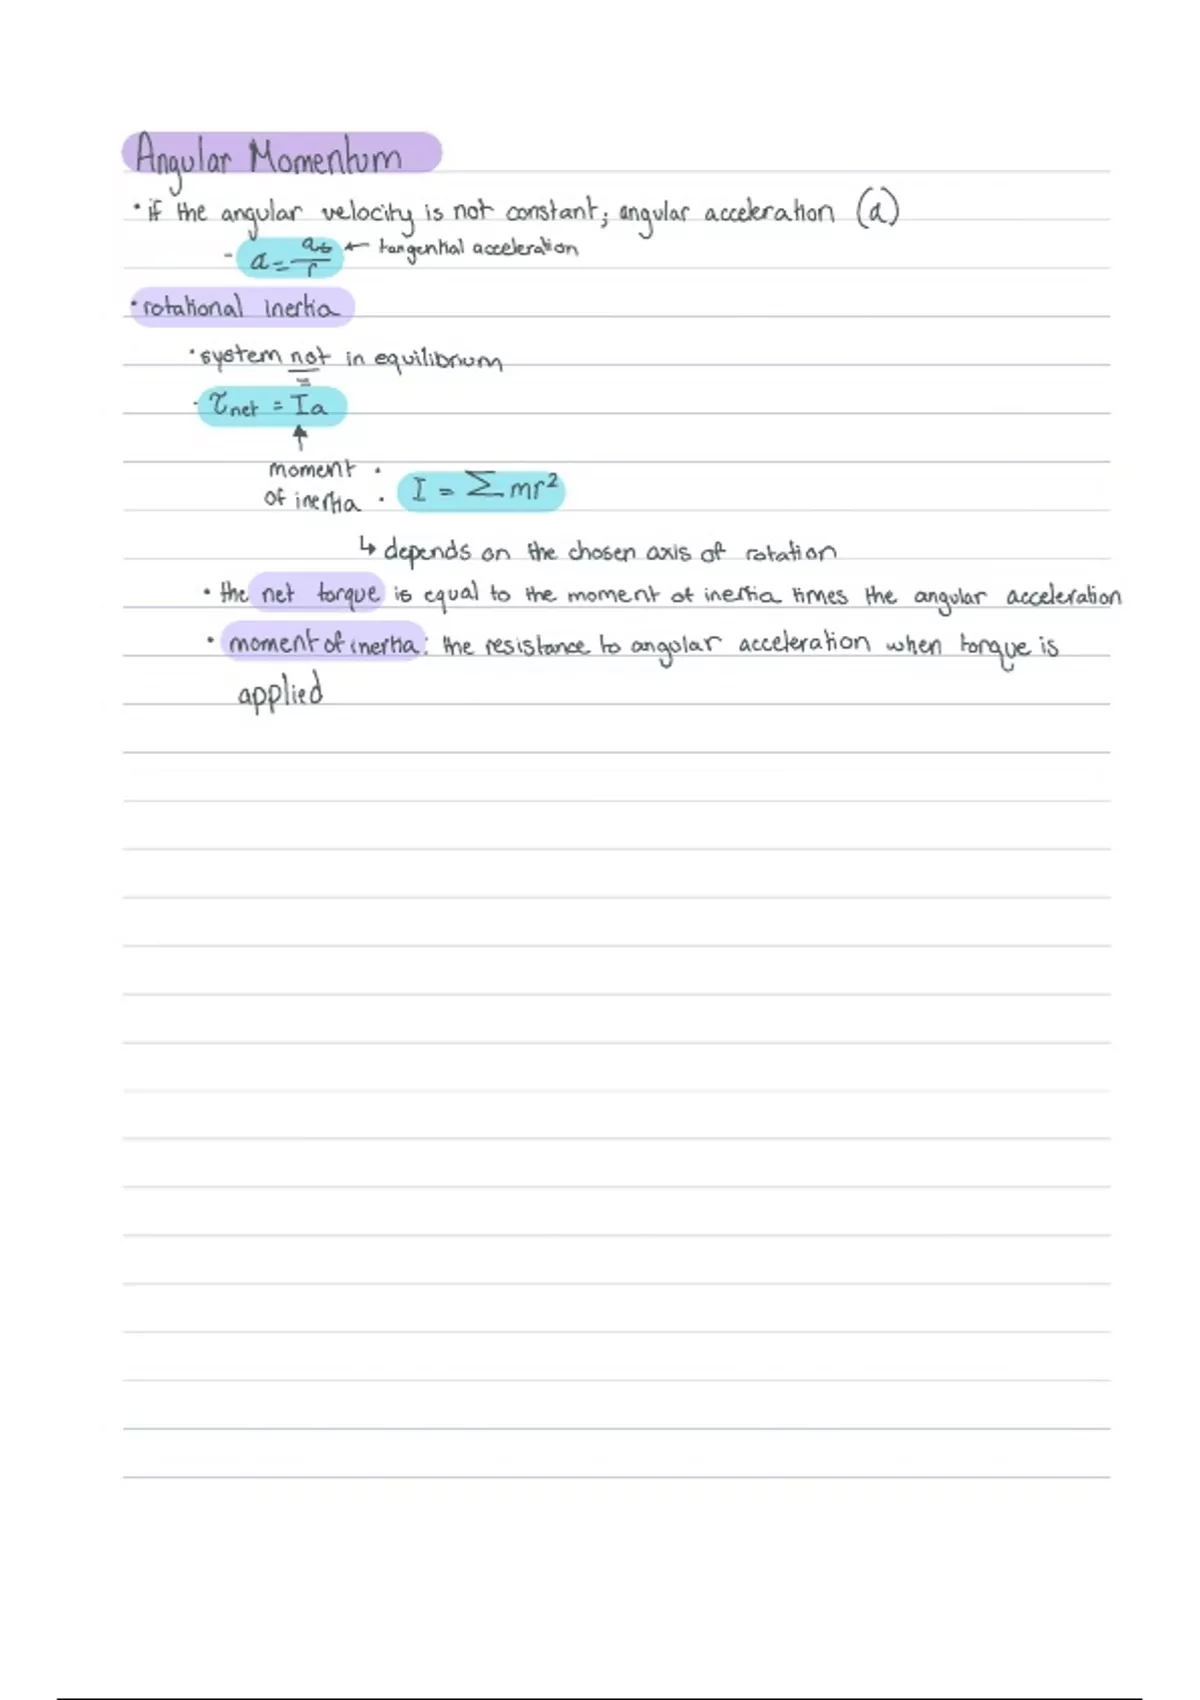 Angular Momentum
• if the angular velocity is not constant; angular acceleration (a)
- a = at/r ← tangential acceleration
• rotational inertia
• system not in equilibrium
- τnet = Ia
↑
moment •
of inertia • I = Σ mr²
↳ depends on the chosen axis of rotation
• the net torque is equal to the moment of inertia times the angular acceleration
• moment of inertia: the resistance to angular acceleration when torque is
applied